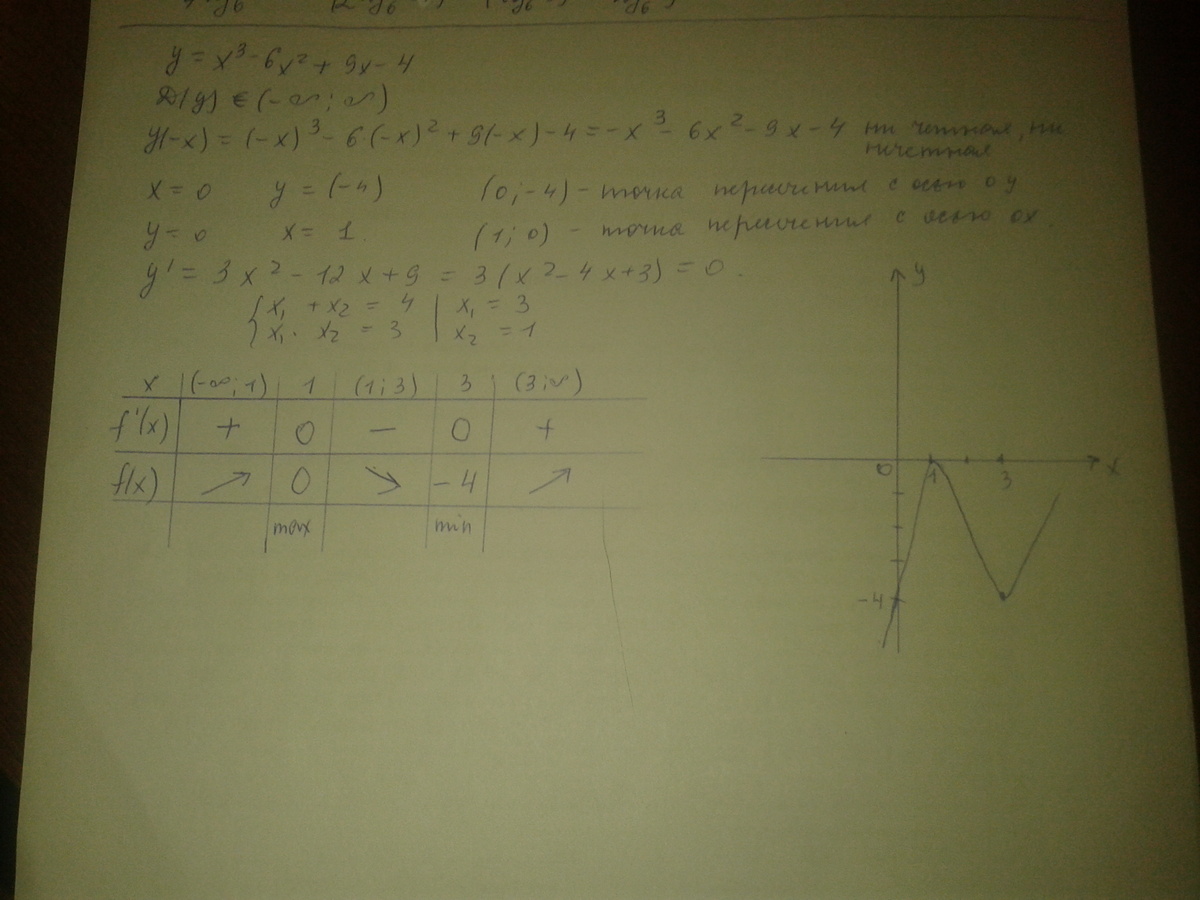 y = x³ - 6x² + 9x - 4
D(y) ∈ (-∞; ∞)
y(-x) = (-x)³ - 6·(-x)² + 9(-x) - 4 = -x³ - 6x² - 9x - 4 ни четная, ни
ничетная
x = 0 y = (-4) (0; -4) - точка пересичения с осью oy
y = 0 x = 1. (1; 0) - точка пересичения с осью ox.
y' = 3x² - 12x + 9 = 3(x² - 4x + 3) = 0.
{ x₁ + x₂ = 4 | x₁ = 3
{ x₁ · x₂ = 3 | x₂ = 1
x | (-∞; 1) | 1 | (1; 3) | 3 | (3; ∞)
f'(x) | + | 0 | - | 0 | +
f(x) | ↗ | 0 | ↘ | -4 | ↗
max min
y
0 1 3 x
-4